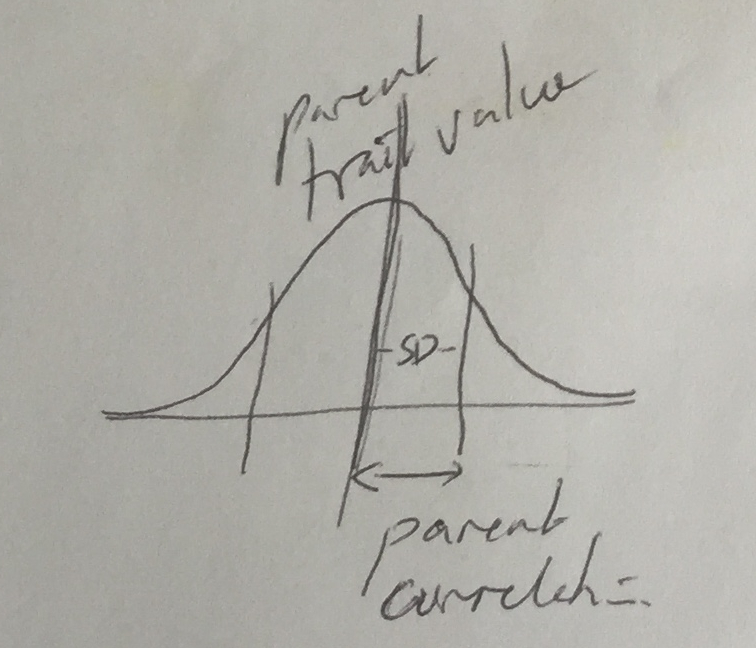 parent
trait value
-SD-
parent
correlation